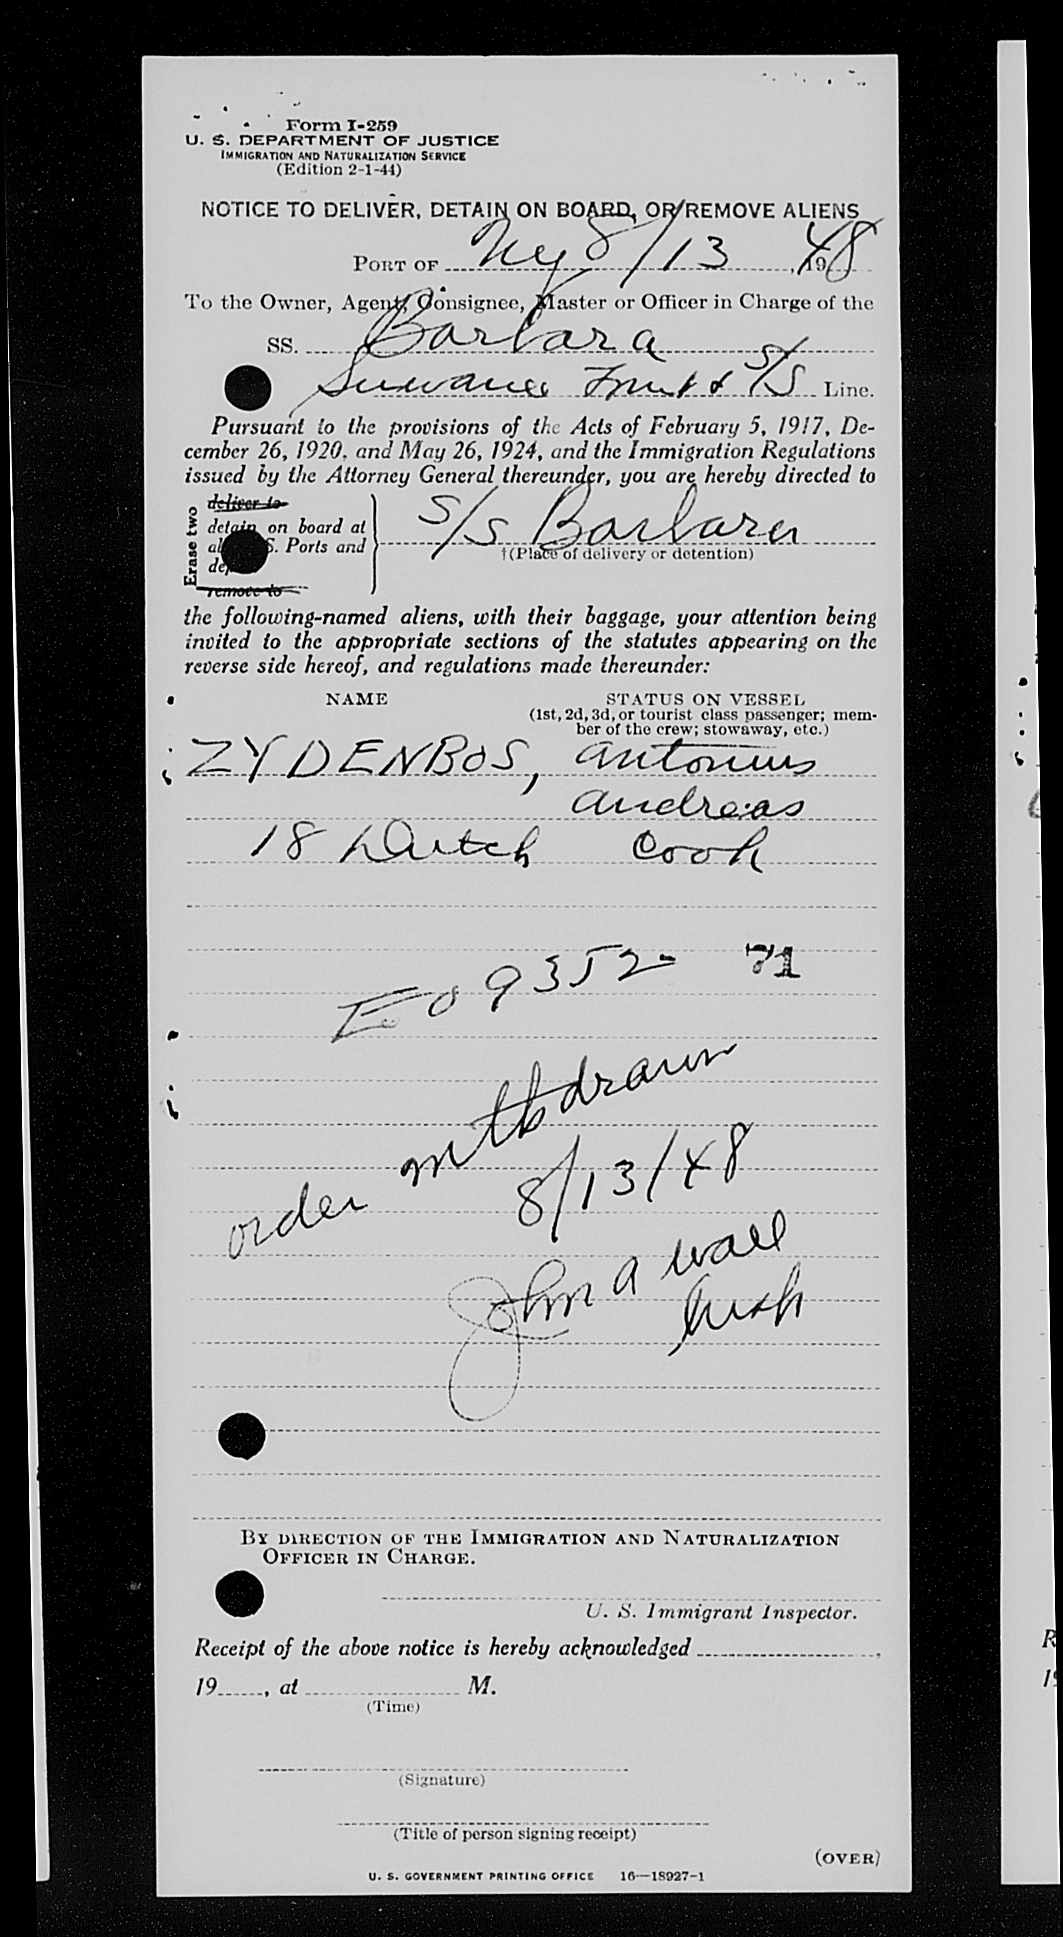 Form I-259
U. S. DEPARTMENT OF JUSTICE
IMMIGRATION AND NATURALIZATION SERVICE
(Edition 2-1-44)
NOTICE TO DELIVER, DETAIN ON BOARD, OR REMOVE ALIENS
PORT OF Ny 8/13, 1948
To the Owner, Agent, Consignee, Master or Officer in Charge of the
SS. Barbara
Suwanee Fruit & S/S Line.
Pursuant to the provisions of the Acts of February 5, 1917, De-
cember 26, 1920, and May 26, 1924, and the Immigration Regulations
issued by the Attorney General thereunder, you are hereby directed to
Erase two
deliver to
detain on board at
S. Ports and
remove to
S/S Barbara
†(Place of delivery or detention)
the following-named aliens, with their baggage, your attention being
invited to the appropriate sections of the statutes appearing on the
reverse side hereof, and regulations made thereunder:
NAME STATUS ON VESSEL
(1st, 2d, 3d, or tourist class passenger; mem-
ber of the crew; stowaway, etc.)
ZYDENBOS, Antonius
Andreas
18 Dutch Cook
E09352 71
order withdrawn
8/13/48
John A Wall
By direction of the Immigration and Naturalization
Officer in Charge.
U. S. Immigrant Inspector.
Receipt of the above notice is hereby acknowledged
19, at M.
(Time)
(Signature)
(Title of person signing receipt)
(OVER)
U. S. GOVERNMENT PRINTING OFFICE 16—18927-1